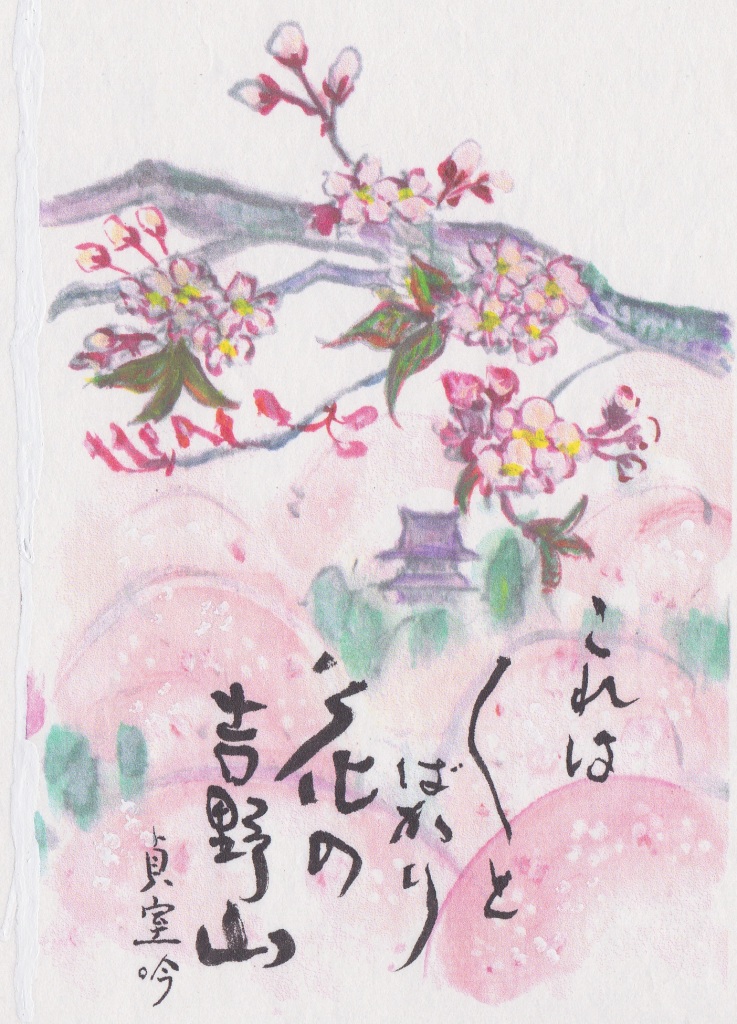 これは
〳〵と
ばかり
花の
吉野山
貞室吟